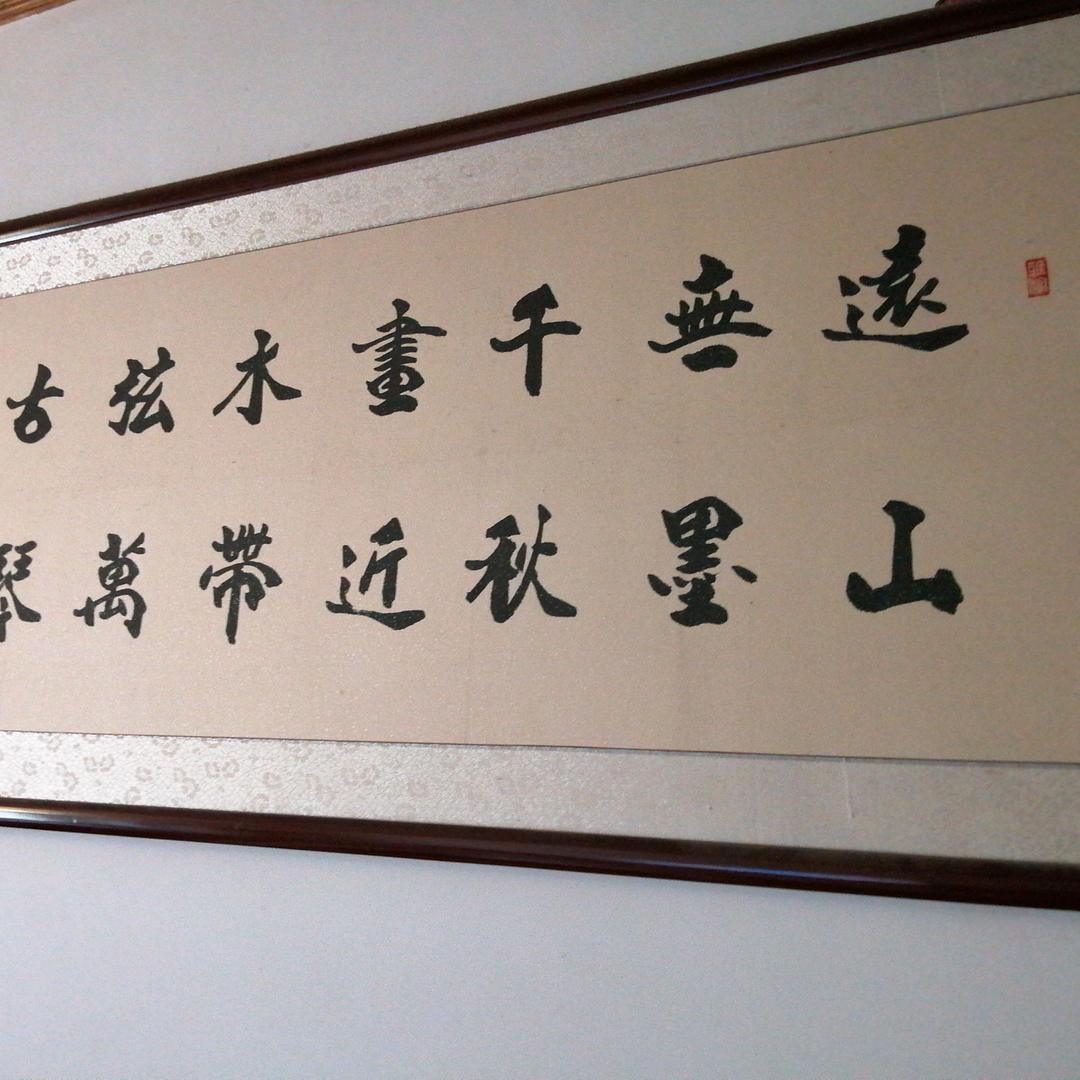 遠山
無墨
千秋
畫近
水帶
弦萬
古琴